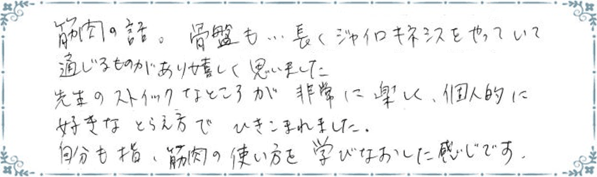 筋肉の話。骨盤も…長くジャイロキネシスをやっていて
通じるものがあり嬉しく思いました
先生のストイックなところが非常に楽しく、個人的に
好きなとらえ方でひきこまれました。
自分も指、筋肉の使い方を学びなおした感じです.